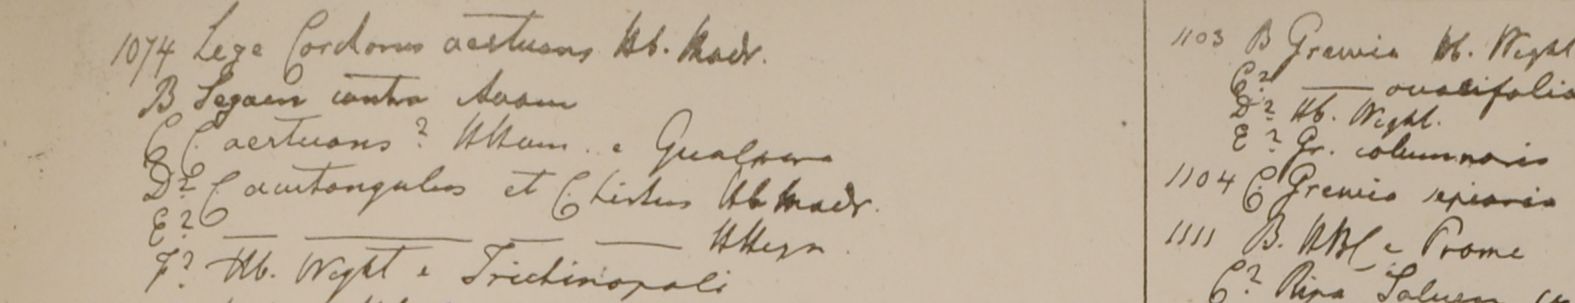 1074 Lege Corchorus aestuans Hb. Madr.
B Segaen contra Avam
C C. aestuans? HHam. e Gualpara
D? C acutangulus et C hirtus Hb Madr.
E? — — — — HHeyn
F? Hb. Wight e Trichinopoli
1103 B Grewia Hb. Wight
C? — ovalifolia
D? Hb. Wight.
E? Gr. columnaris
1104 C Grewia sepiaria
1111 B. HBC e Prome
C? Ripa Saluen